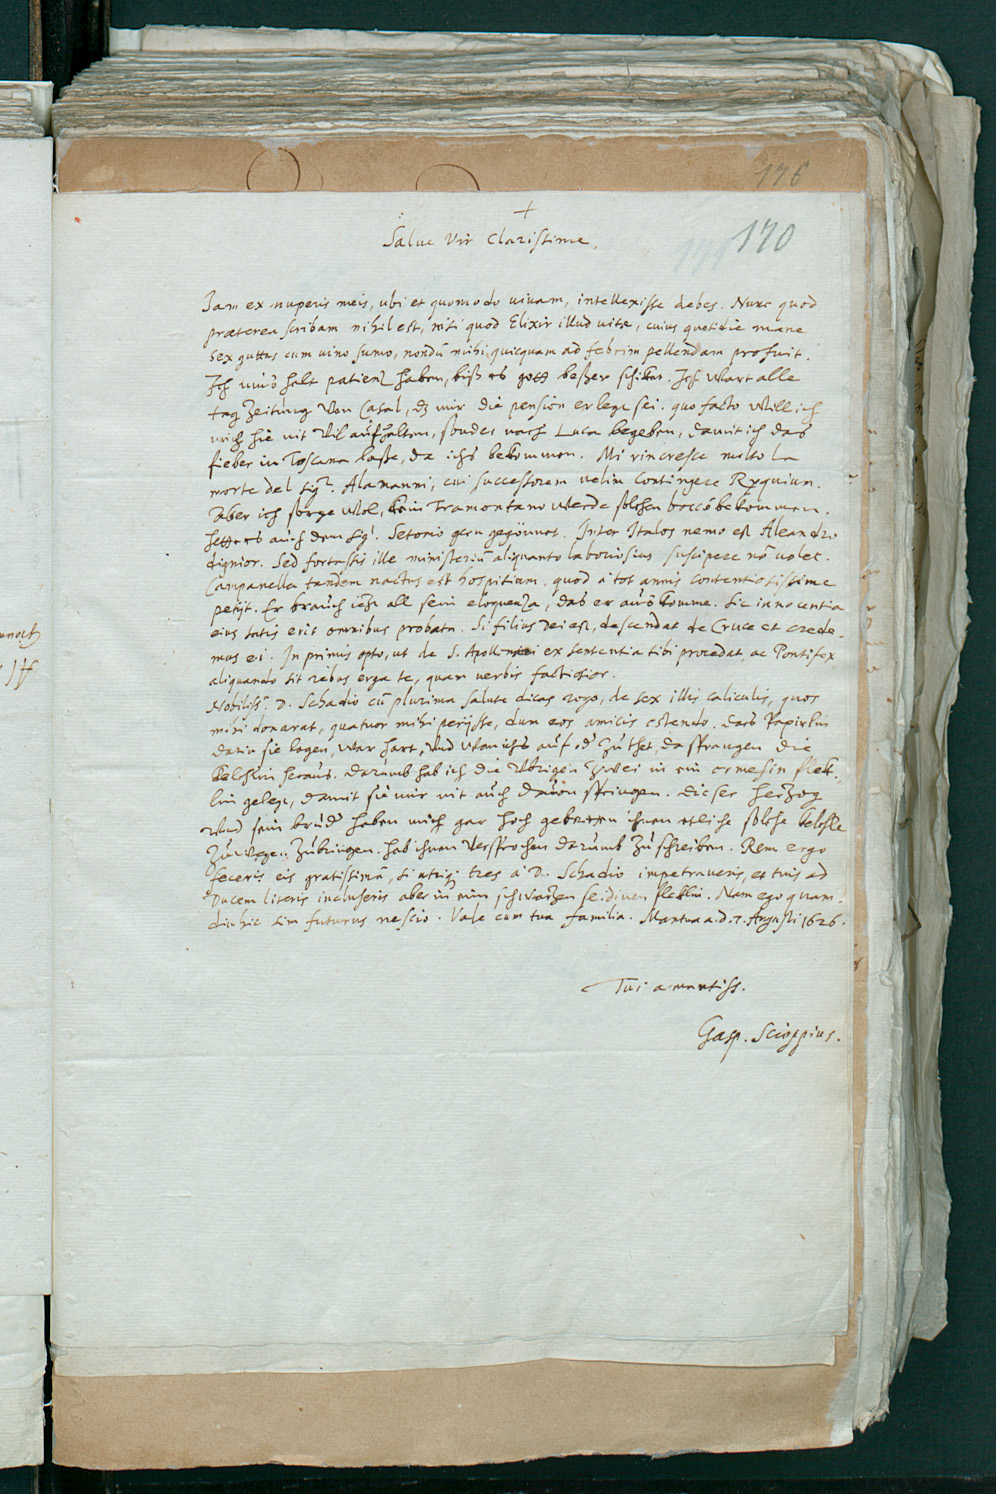 176
+
170
Salue Vir Clarissime,
Iam ex nuperis meis, ubi et quomodo uiuam, intellexisse debes. Nunc quod
præterea scribam nihil est, nisi quod Elixir illud uitæ, cuius quotidie mane
sex guttas cum uino sumo, nondū mihi quicquam ad febrim pellendam profuit.
Ich mus halt patienz haben, biß es gott beßer schikt. Ich wart alle
tag zeitung von Casal, dz mir die pension erlegt sei. quo facto will ich
mich hie nit vil aufhalten, sonder nach Luca begeben, damit ich das
fieber in Toscana laße, da ichs bekommen. Mi rincresce molto la
morte del Sigr. Alamanni, cui successorem uelim contingere Ryquium.
Aber ich sorge wol, kein Tramontano werde solchen boccó bekommen.
hette es auch dem Sigr. Setonio gern gegönnet. Inter Italos nemo est Aleandro
dignior. Sed fortassis ille ministeriū aliquanto laboriosius suscipere nō uolet.
Campanella tandem nactus est hospitium, quod à tot annis contentiosissime
petijt. Er brauch ietz all sein eloquenza, das er aus komme. Sic innocentia
eius satis erit omnibus probata. Si filius Dei est, descendat de Cruce et crede-
mus ei. In primis opto, ut de S. Apollonia ex sententia tibi procedat, ac Pontifex
aliquando sit rebus erga te, quam uerbis factiosior.
Nobiliss. D. Schadio cū plurima salute dicas rogo, de sex illis caliculis, quos
mihi donarat, quatuor mihi perijsse, dum eos amicis ostendo. das Papirlin
darin sie lagen, war hart, und wan ichs auf thet, da sprangen die
kelchlin heraus. darumb hab ich die vbrigen zwei in ein ormesin flek-
lin gelegt, damit sie mir nit auch dauon springen. Dieser herzog
und sein brud haben mich gar hoch gebetten ihnen etliche solche kelchle
zuwegen zubringen. hab ihnen versprochen darumb zuschreiben. Rem ergo
feceris eis gratissimā, si utriq tres à D. Schadio impetraueris, et tuis ad
Ducem literis incluseris aber in ein schwarzen seidinen fleklin. Nam ego quam-
diu hic sim futurus nescio. Vale cum tua familia. Mantua a. d. 7. Augusti 1626.
Tui amantiss.
Gasp. Scioppius.